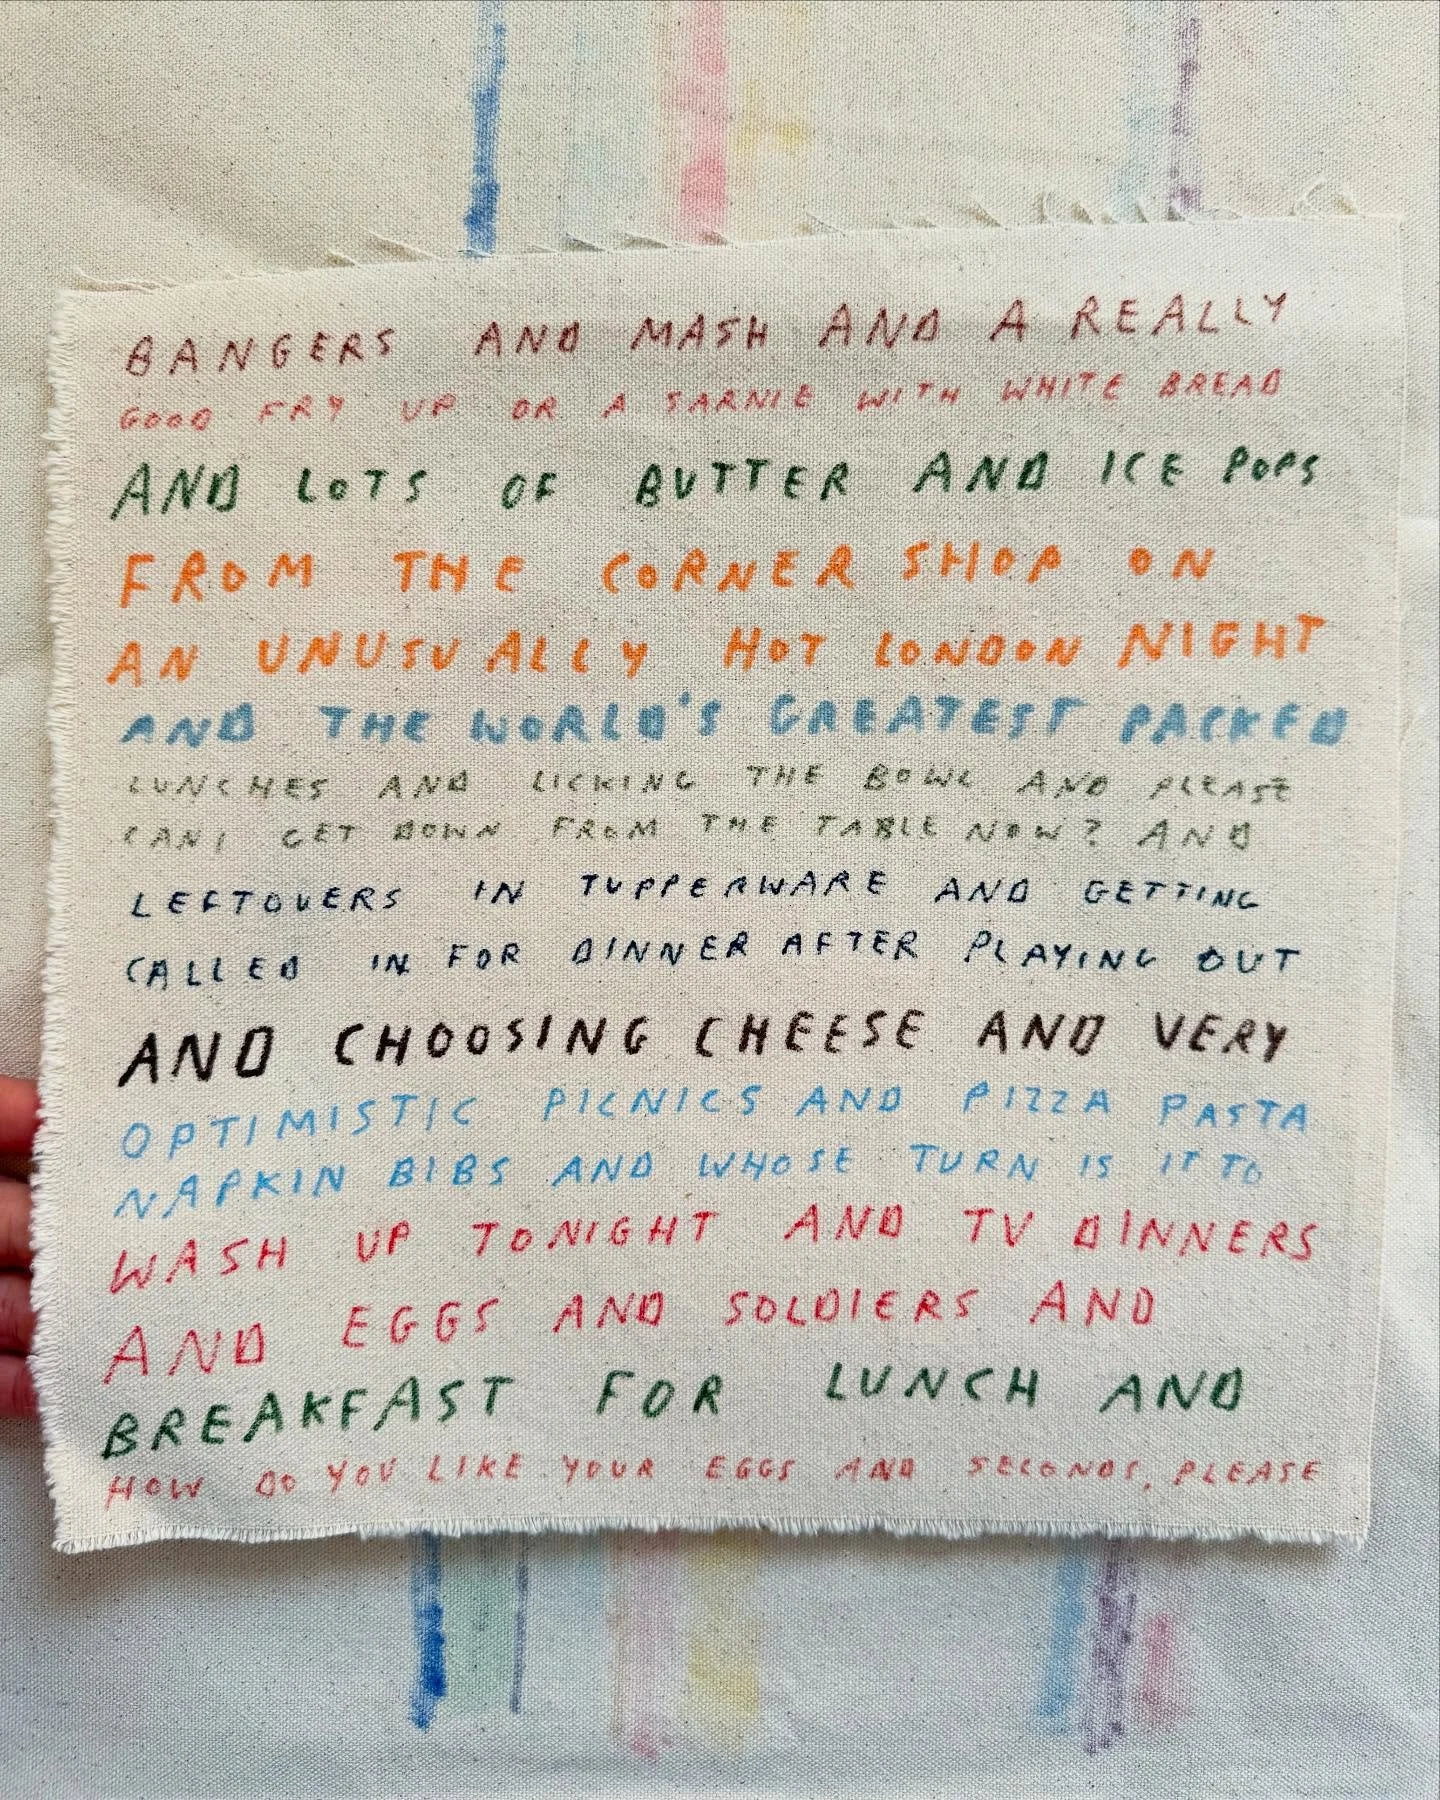 BANGERS AND MASH AND A REALLY
GOOD FRY UP OR A SARNIE WITH WHITE BREAD
AND LOTS OF BUTTER AND ICE POPS
FROM THE CORNER SHOP ON
AN UNUSUALLY HOT LONDON NIGHT
AND THE WORLD'S GREATEST PACKED
LUNCHES AND LICKING THE BOWL AND PLEASE
CAN I GET DOWN FROM THE TABLE NOW? AND
LEFTOVERS IN TUPPERWARE AND GETTING
CALLED IN FOR DINNER AFTER PLAYING OUT
AND CHOOSING CHEESE AND VERY
OPTIMISTIC PICNICS AND PIZZA PASTA
NAPKIN BIBS AND WHOSE TURN IS IT TO
WASH UP TONIGHT AND TV DINNERS
AND EGGS AND SOLDIERS AND
BREAKFAST FOR LUNCH AND
HOW DO YOU LIKE YOUR EGGS AND SECONDS, PLEASE